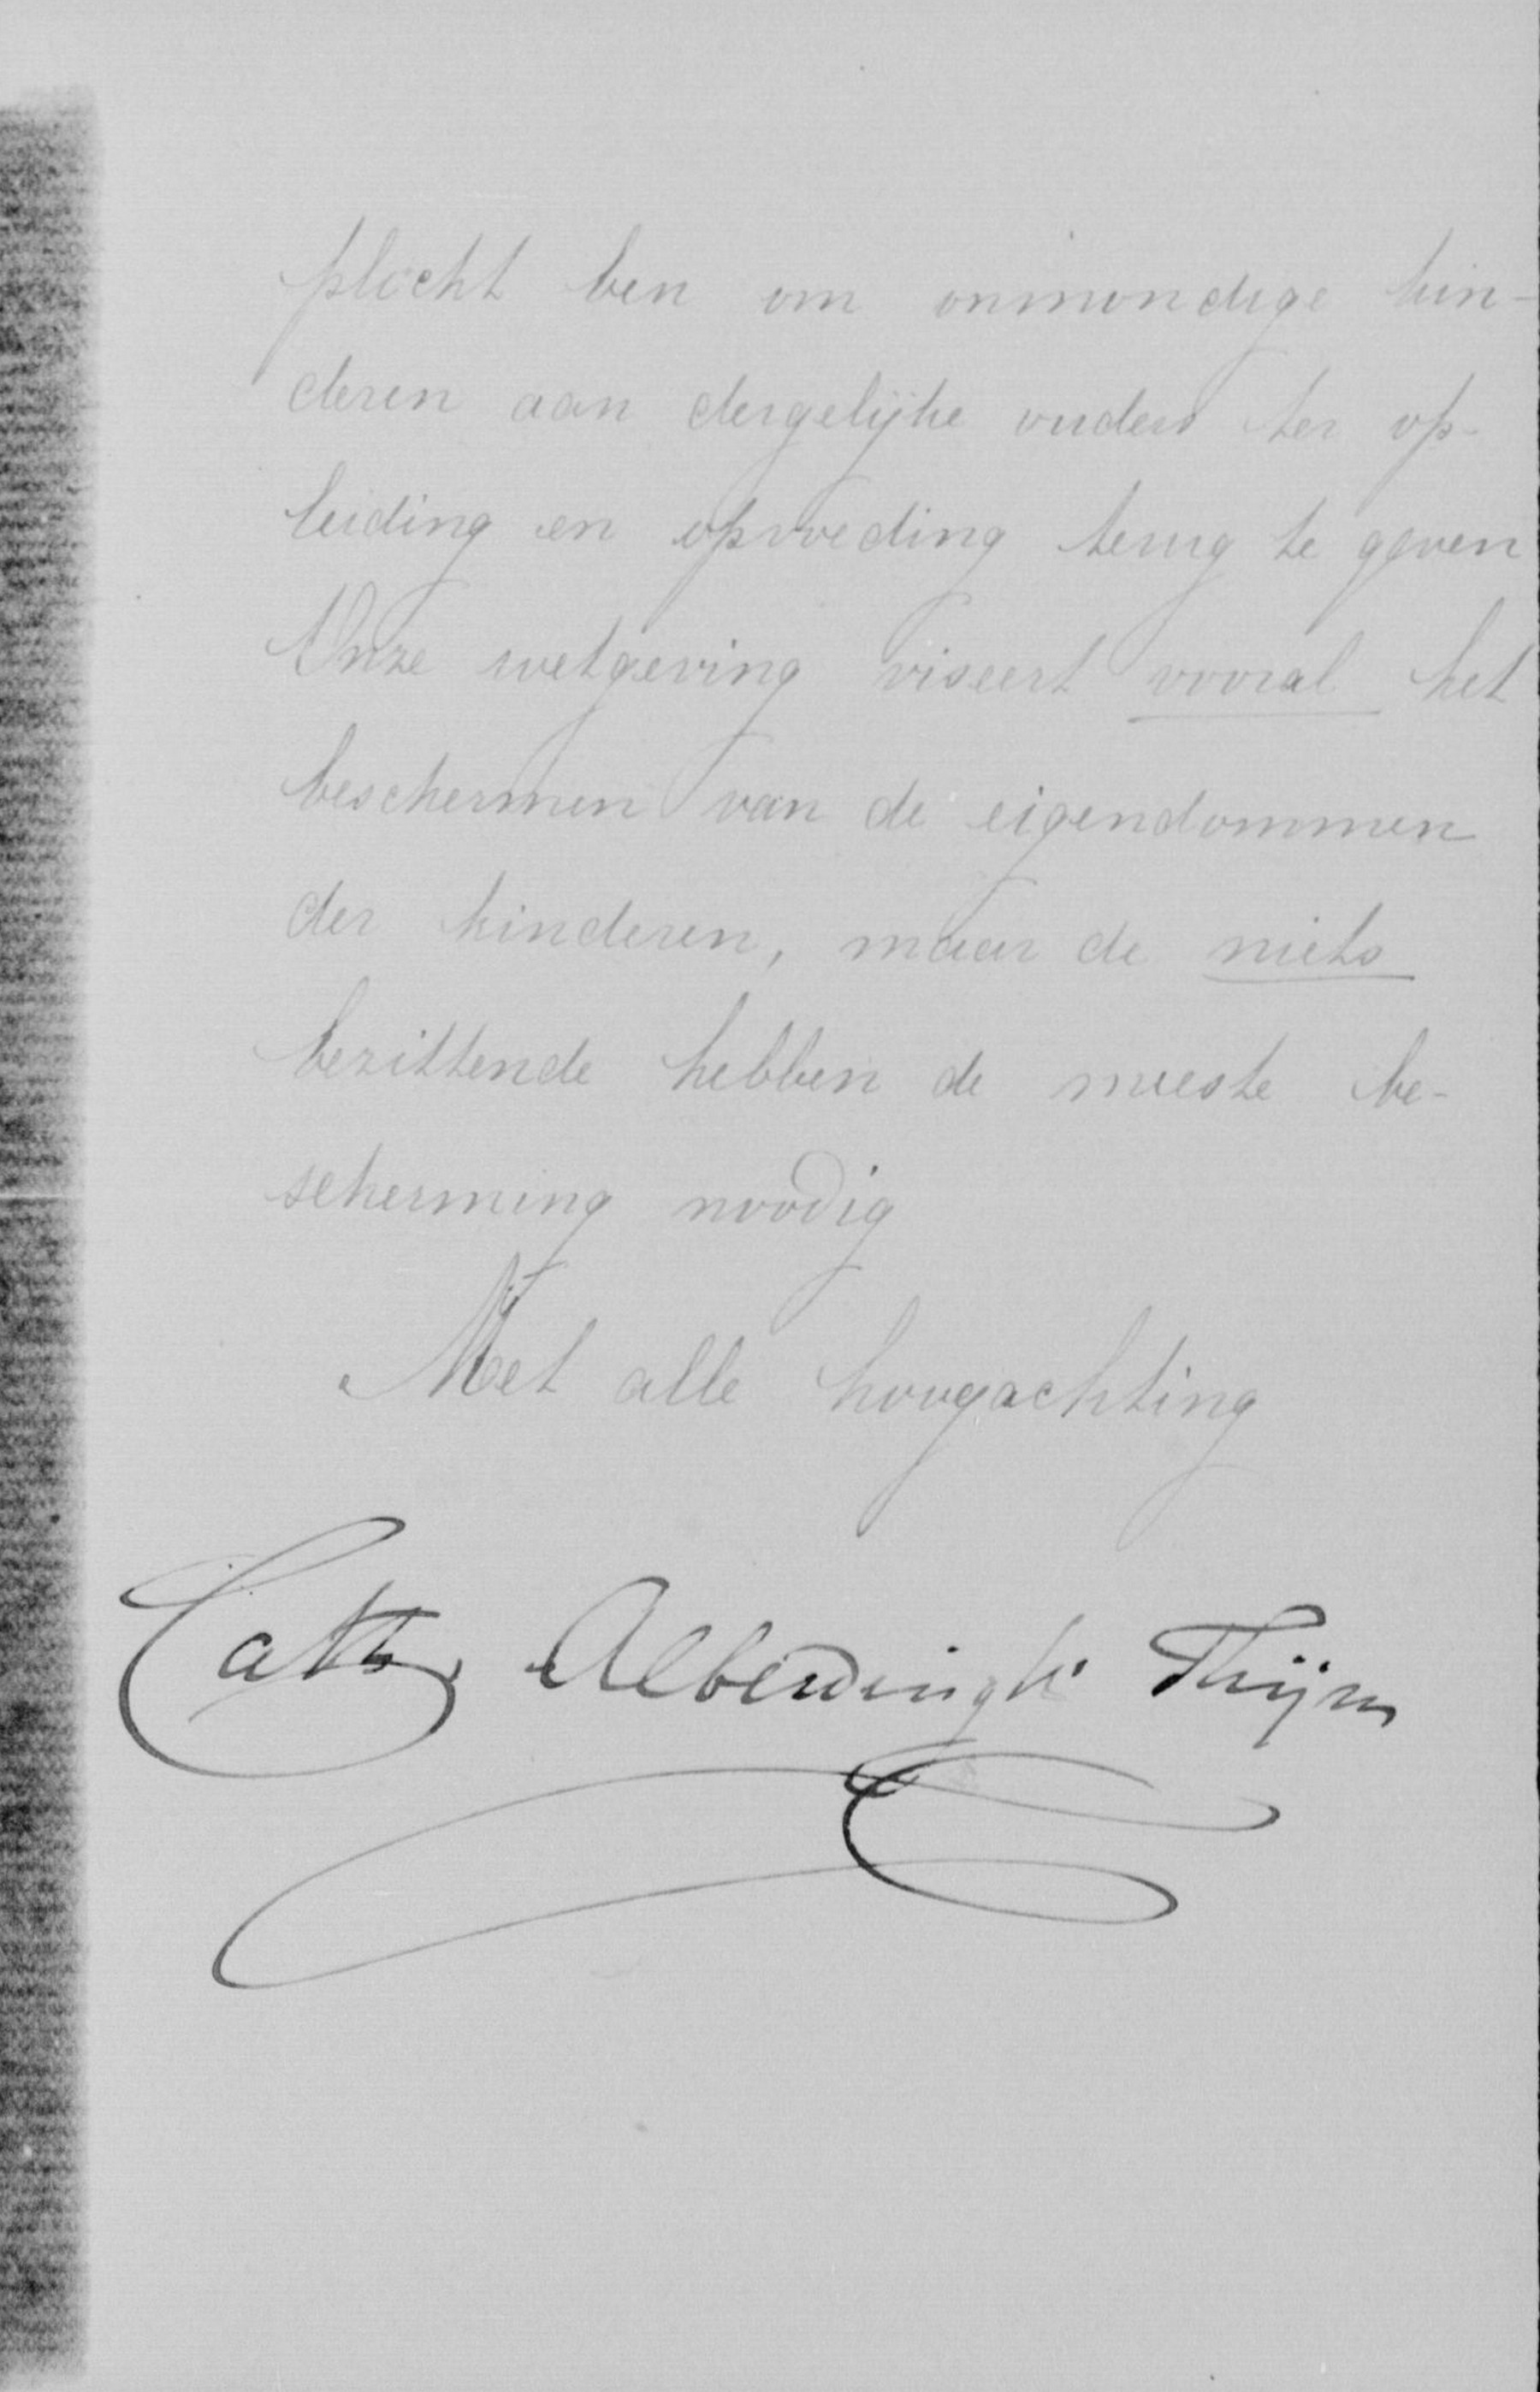 plicht ben om onmondige kin-
deren aan dergelijke ouders ter op-
leiding en opvoeding terug te geven
Onze wetgeving viseert vooral het
beschermen van de eigendommen
der kinderen, maar de niets
bezittende hebben de meeste be-
scherming noodig
Met alle hoogachting
Cath. Alberdingk Thijm